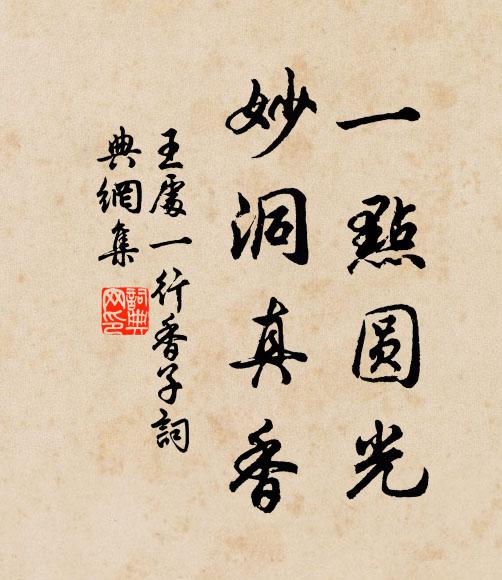 一點圓光
妙洞真香
王處一行香子詞
典網集
詞典
网印